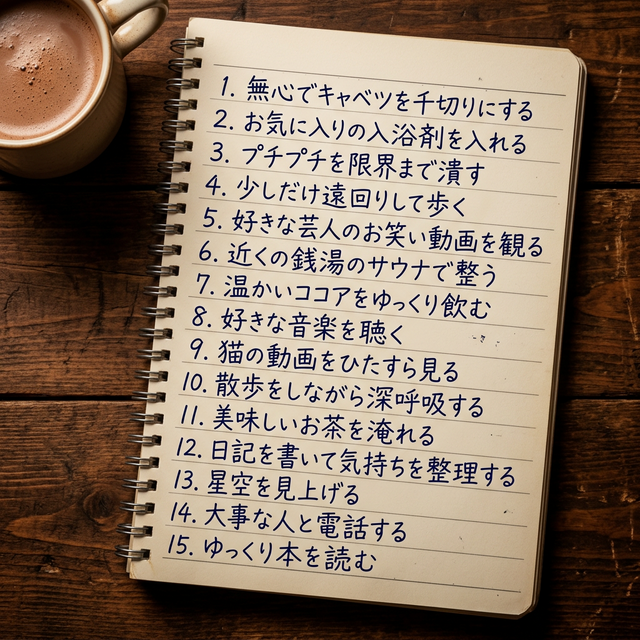 1. 無心でキャベツを千切りにする
2. お気に入りの入浴剤を入れる
3. プチプチを限界まで潰す
4. 少しだけ遠回りして歩く
5. 好きな芸人のお笑い動画を観る
6. 近くの銭湯のサウナで整う
7. 温かいココアをゆっくり飲む
8. 好きな音楽を聴く
9. 猫の動画をひたすら見る
10. 散歩をしながら深呼吸する
11. 美味しいお茶を淹れる
12. 日記を書いて気持ちを整理する
13. 星空を見上げる
14. 大事な人と電話する
15. ゆっくり本を読む